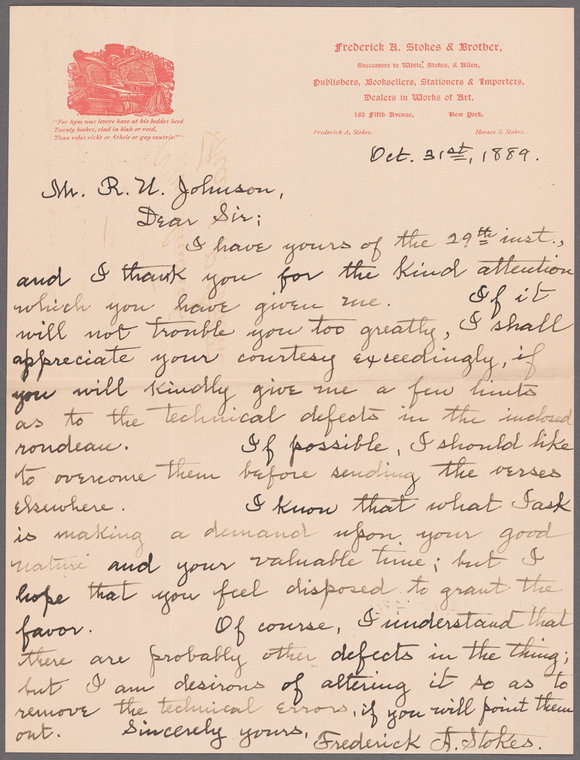 Frederick A. Stokes & Brother,
Successors to White, Stokes, & Allen,
Publishers, Booksellers, Stationers & Importers,
Dealers in Works of Art.
182 Fifth Avenue, New York.
Frederick A. Stokes. Horace S. Stokes.
"For hym was levere have at his beddes heed
Twenty bookes, clad in blak or reed,
Than robes riche or fithele or gay sautrie."
Oct. 31st, 1889.
Mr. R. U. Johnson,
Dear Sir;
I have yours of the 29th inst.,
and I thank you for the kind attention
which you have given me. If it
will not trouble you too greatly, I shall
appreciate your courtesy exceedingly, if
you will kindly give me a few hints
as to the technical defects in the inclosed
rondeau. If possible, I should like
to overcome them before sending the verses
elsewhere. I know that what I ask
is making a demand upon your good
nature and your valuable time; but I
hope that you feel disposed to grant the
favor. Of course, I understand that
there are probably other defects in the thing;
but I am desirous of altering it so as to
remove the technical errors, if you will point them
out. Sincerely yours,
Frederick A. Stokes.